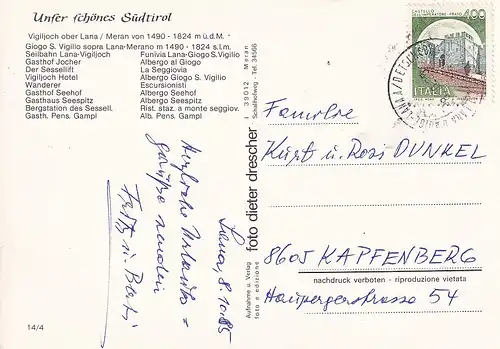 Unser schönes Südtirol
Vigiljoch ober Lana / Meran von m 1490 - 1824 m ü.d.M.
Giogo S. Vigilio sopra Lana-Merano m 1490 - 1824 s.l.m.
Seilbahn Lana-Vigiljoch Funivia Lana-Giogo S. Vigilio
Gasthof Jocher Albergo al Giogo
Der Sessellift La Seggiovia
Vigiljoch Hotel Albergo Giogo S. Vigilio
Wanderer Escursionisti
Gasthof Seehof Albergo Seehof
Gasthaus Seespitz Albergo Seespitz
Bergstation des Sessell. Rist. staz. a monte seggiov.
Gasth. Pens. Gampl Alb. Pens. Gampl
Lana, 8.10.85
Herzliche Urlaubs=
grüße senden
Fritz u.
14/4
Aufnahme u. Verlag
foto e edizione
foto dieter drescher
I 39012 Meran
Schafferweg - Tel. 34566
CASTELLO
DELL'IMPERATORE - PRATO
400
ITALIA
Familie
Kurt u. Rosi DUNKEL
8605 KAPFENBERG
nachdruck verboten - riproduzione vietata
Haupergerstrasse 54